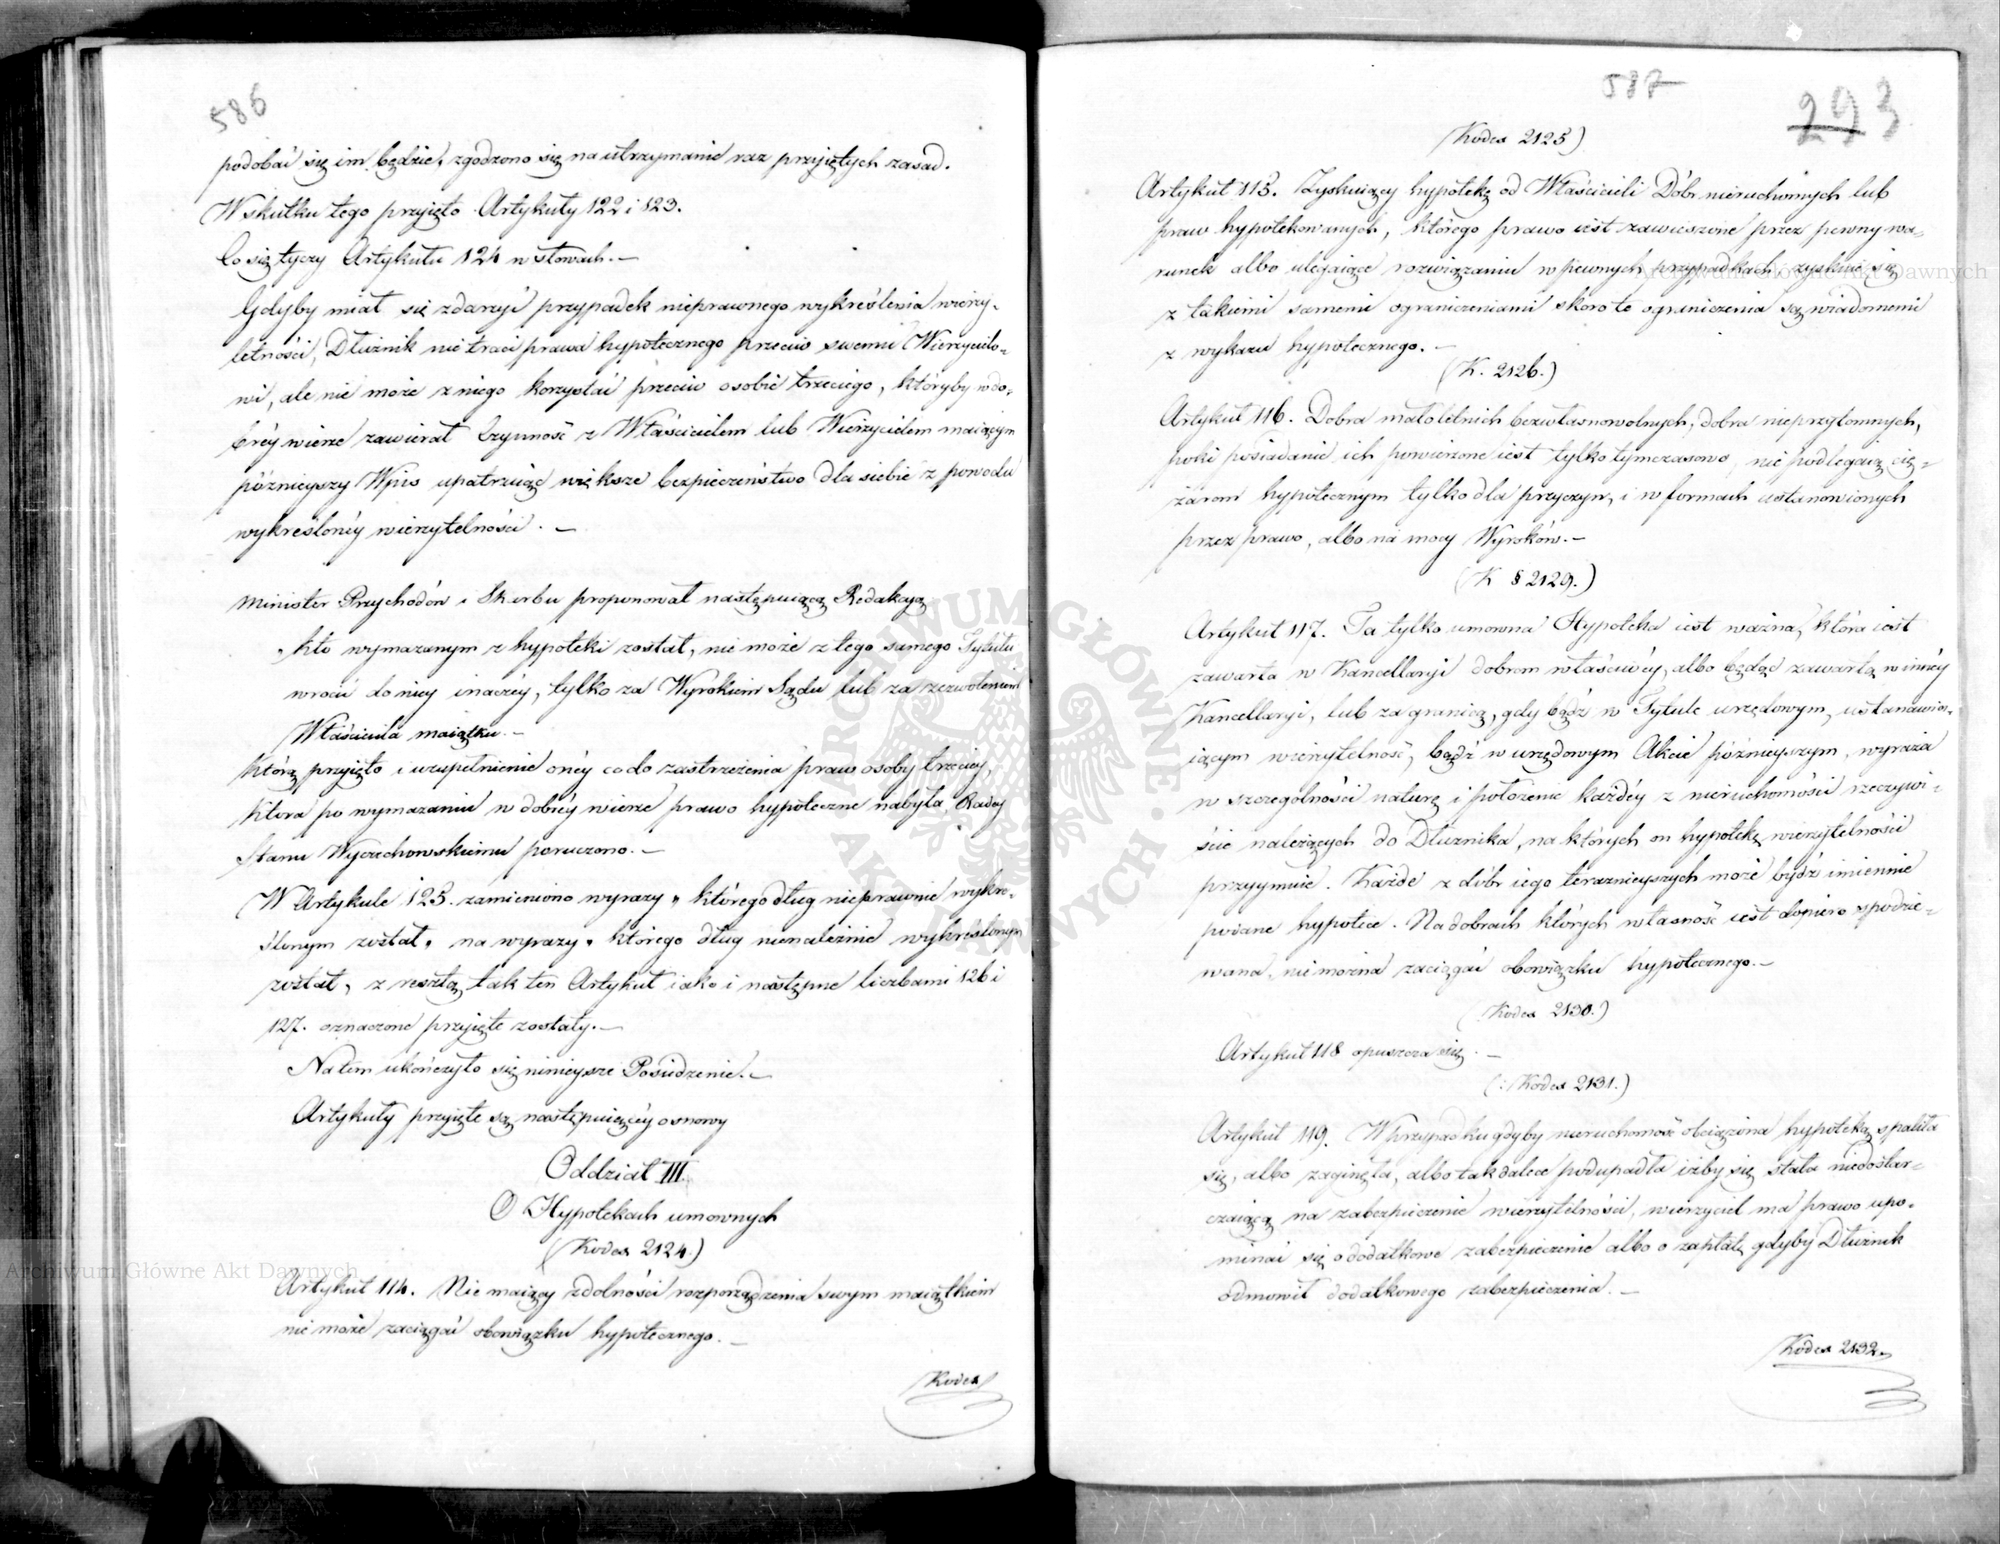 586
podobać się im będzie, zgodzono się na utrzymanie raz przyiętych zasad.
W skutku tego przyięto Artykuły 122 i 123.
Co się tyczy Artykułu 124 w słowach. –
Gdyby miał się zdarzyć przypadek nieprawnego wykreślenia wierzy-
telności, Dłużnik nie traci prawa hypotecznego przeciw swemu Wierzycielo-
wi, ale nie może z niego korzystać przeciw osobie trzeciego, któryby w do-
bréy wierze zawierał Czynność z Właścicielem lub Wierzycielem maiącym
późnieyszy Wpis upatrzuiąc większe bezpieczeństwo dla siebie z powodu
wykreślonéy wierzytelności. –
Minister Przychodów i Skarbu proponował następuiącą Redakcyą
„Kto wymazanym z hypoteki został, nie może z tego samego Tytułu
wrócić do niey inaczéy, tylko za Wyrokiem Sądu lub za zezwoleniem
Właściciela maiątku. –
Którą przyięto i uzupełnienie onéy co do zastrzeżenia praw osoby trzeciéy,
która po wymazaniu w dobréy wierze prawo hypoteczne nabyła, Radcy
Stanu Wyczechowskiemu poruczono. –
W Artykule 125. zamieniono wyrazy „ którego dług nieprawnie wykre-
ślonym został „ na wyrazy „ którego dług nienależnie wykreślonym
został, z resztą tak ten Artykuł iako i następne liczbami 126 i
127. oznaczone przyięte zostały. –
Na tem ukończyło się ninieysze Posiedzenie. –
Artykuły przyięte są następuiącéy osnowy
Oddział III.
O Hypotekach umownych
(Kodex 2124.)
Artykuł 114. Nie maiący zdolności rozporządzenia swym maiątkiem
nie może zaciągać obowiązku hypotecznego. –
Kodex
587
293
(Kodex 2125)
Artykuł 115. Zyskuiący hypotekę od Właścicieli Dóbr nieruchomych lub
praw hypotekowanych, którego prawo iest zawieszone przez pewny wa-
runek albo ulegaiące rozwiązaniu w pewnych przypadkach, zyskuie ią
z takiemi samemi ograniczeniami skoro te ograniczenia są wiadomemi
z wykazu hypotecznego. –
(K. 2126.)
Artykuł 116. Dobra małoletnich bezwłasnowolnych, dobra nieprzytomnych,
póki posiadanie ich powierzone iest tylko tymczasowo, nie podlegaią cię-
żarom hypotecznym tylko dla przyczyn, i w formach ustanowionych
przez prawo, albo na mocy Wyroków. –
(K § 2129.)
Artykuł 117. Ta tylko umowna Hypoteka iest ważna, która iest
zawarta w Kancellaryi dobrom właściwéy, albo będąc zawartą w innéy
Kancellaryi, lub za granicą, gdy bądź w Tytule urzędowym, ustanawia-
iącym wierzytelność, bądź w urzędowym Akcie późnieyszym, wyraża
w szczególności naturę i położenie każdéy z nieruchomości rzeczywi-
ście należących do Dłużnika, na których on hypotekę wierzytelności
przyymuie. Każde z dóbr iego teraznieyszych może bydź imiennie
podane hypotece. Na dobrach których własność iest dopiero spodzie-
wana, nie można zaciągać obowiązku hypotecznego. –
(Kodex 2130.)
Artykuł 118 opuszcza się. –
(: Kodex 2131.)
Artykuł 119. W przypadku gdyby nieruchomość obciążona hypoteką spaliła
się, albo zaginęła, albo tak dalece podupadła iżby się stała niedostar-
czaiącą na zabezpieczenie wierzytelności, wierzyciel ma prawo upo-
minać się o dodatkowe zabezpieczenie albo o zapłatę gdyby Dłużnik
odmówił dodatkowego zabezpieczenia. –
Kodex 2132.
ARCHIWUM GŁÓWNE AKT DAWNYCH
Archiwum Główne Akt Dawnych
Archiwum Główne Akt Dawnych